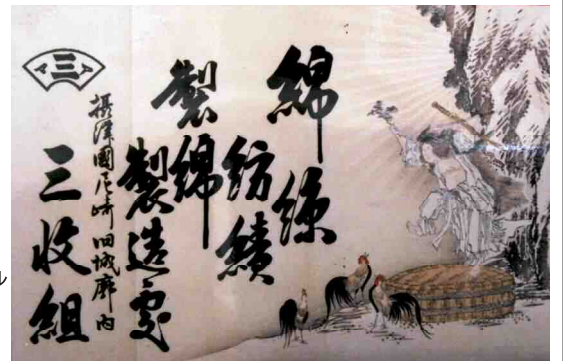 綿絲
紡績
製綿
製造處
摂津國尼崎旧城廓内
三收組
三